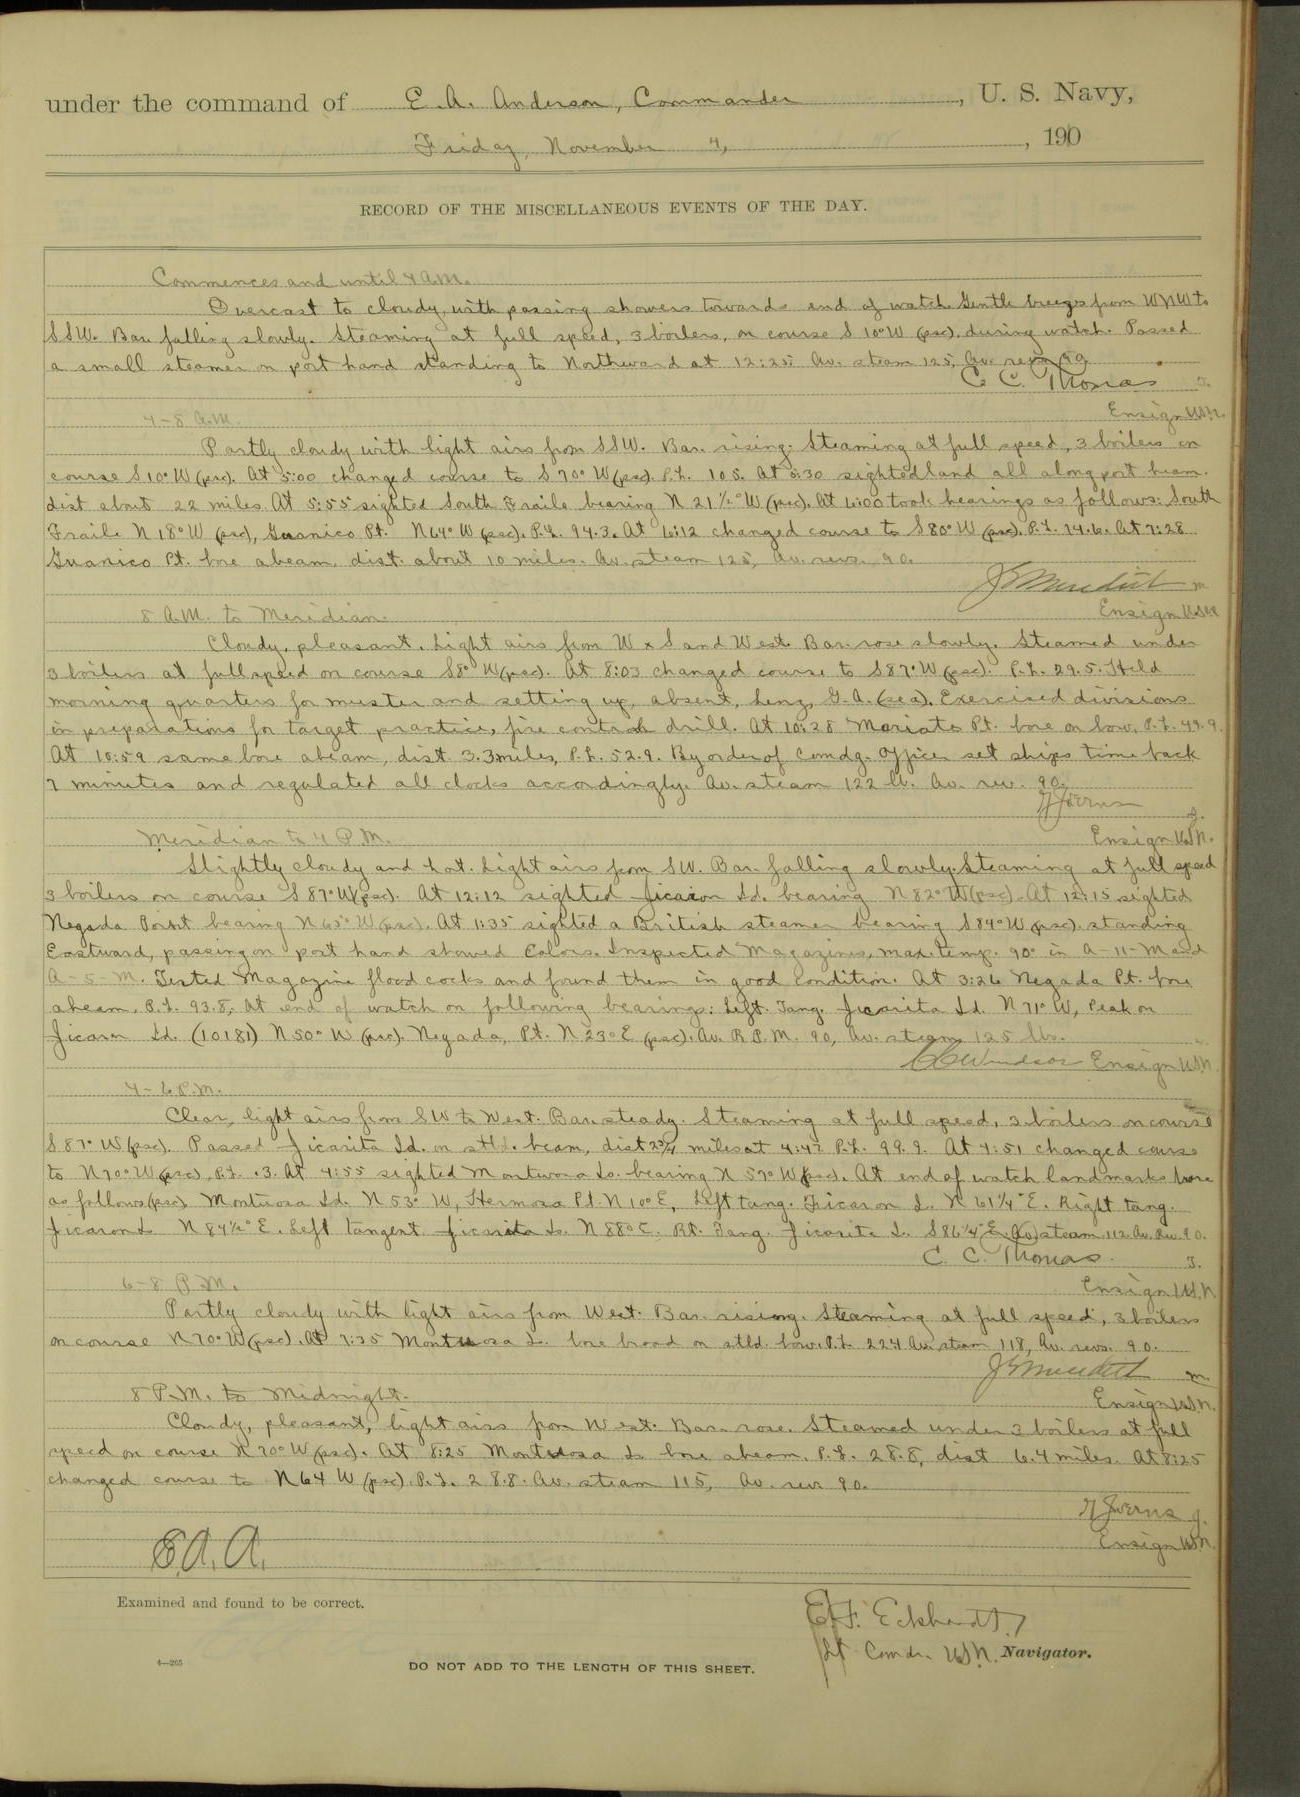 under the command of E. A. Anderson, Commander, U. S. Navy,
Friday, November 4, 1910
RECORD OF THE MISCELLANEOUS EVENTS OF THE DAY.
Commences and until 4 A.M.
Overcast to cloudy, with passing showers towards end of watch. Gentle breezes from WNW to
SSW. Bar. falling slowly. Steaming at full speed, 3 boilers, on course S 10° W (psc). during watch. Passed
a small steamer on port hand standing to Northward at 12:25. Av. steam 125, Av. revs. 90
C. C. Thomas
Ensign U.S.N.
4-8 A.M.
Partly cloudy with light airs from SSW. Bar. rising. Steaming at full speed, 3 boilers on
course S 10° W (psc). At 5:00 changed course to S 70° W (psc). P.L. 105. At 5:30 sighted land all along port beam.
dist about 22 miles. At 5:55 sighted South Fraile bearing N 21 1/2° W (psc). At 6:00 took bearings as follows: South
Fraile N 18° W (psc), Guanico Pt. N 64° W (psc). P.L. 94.3. At 6:12 changed course to S 80° W (psc). P.L. 14.6. At 7:28
Guanico Pt. bore abeam, dist. about 10 miles. Av. steam 125, Av. revs. 90.
Meredith
Ensign U.S.N.
8 A.M. to Meridian.
Cloudy, pleasant. Light airs from W x S and West. Bar. rose slowly. Steamed under
3 boilers at full speed on course S 8° W (psc). At 8:03 changed course to S 87° W (psc). P.L. 29.5. Held
morning quarters for muster and setting up, absent, Lenz, G.A. (sea). Exercised divisions
in preparations for target practice, fire control drill. At 10:28 Mariato Pt. bore on bow, P.L. 49.9.
At 10:59 same bore abeam, dist. 3.3 miles, P.L. 52.9. By order of Comdg. Officer set ships time back
7 minutes and regulated all clocks accordingly. Av. steam 122 lb. Av. rev. 90.
Ensign U.S.N.
Meridian to 4 P.M.
Slightly cloudy and hot. Light airs from SW. Bar. falling slowly. Steaming at full speed
3 boilers on course S 87° W (psc). At 12:12 sighted Jicaron Id. bearing N 82° W (psc). At 12:15 sighted
Negada Point bearing N 65° W (psc). At 1:35 sighted a British steamer bearing S 84° W (psc). standing
Eastward, passing on port hand showed Colors. Inspected Magazines, max. temp. 90° in A-11-M and
A-5-M. Tested Magazine flood cocks and found them in good condition. At 3:26 Negada Pt. bore
abeam, P.L. 93.8, At end of watch on following bearings: Left. Tang. Jicarita Id. N 71° W, Peak on
Jicaron Id. (10181) N 50° W (psc). Negada, Pt. N 23° E (psc). Av. R.P.M. 90, Av. steam 125 lbs.
Windsor Ensign U.S.N.
4-6 P.M.
Clear, light airs from SW to West. Bar. steady. Steaming at full speed, 3 boilers on course
S 87° W (psc). Passed Jicarita Id. on stbd. beam, dist 2 3/4 miles at 4:47 P.L. 99.9. At 4:51 changed course
to N 70° W (psc), P.L. .3. At 4:55 sighted Montuosa Is. bearing N 57° W (psc). At end of watch landmarks bore
as follows (psc) Montuosa Id. N 53° W, Hermosa Pt. N 10° E, Left tang. Jicaron I. N 61 1/4° E. Right tang.
Jicaron I. N 84 1/2° E. Left tangent Jicarita Is. N 88° E. Rt. Tang. Jicarita I. S 86 1/4° E. Av. steam 112 Av. Rev. 90.
C. C. Thomas.
Ensign U.S.N.
6-8 P.M.
Partly cloudy with light airs from West. Bar. rising. Steaming at full speed, 3 boilers
on course N 70° W (psc). At 7:35 Montuosa I. bore broad on stbd. bow. P.L. 22.4 Av. steam 118, Av. revs. 90.
Meredith
Ensign U.S.N.
8 P.M. to Midnight.
Cloudy, pleasant, light airs from West. Bar. rose. Steamed under 3 boilers at full
speed on course N 70° W (psc). At 8:25 Montuosa Is bore abeam. P.L. 28.8, dist 6.4 miles. At 8:25
changed course to N 64 W (psc). P.L. 28.8. Av. steam 115, Av. rev. 90.
Ensign U.S.N.
E. A. A.
Examined and found to be correct.
E. F. Eckhardt,
Lt Comdr. U.S.N. Navigator.
4—265
DO NOT ADD TO THE LENGTH OF THIS SHEET.